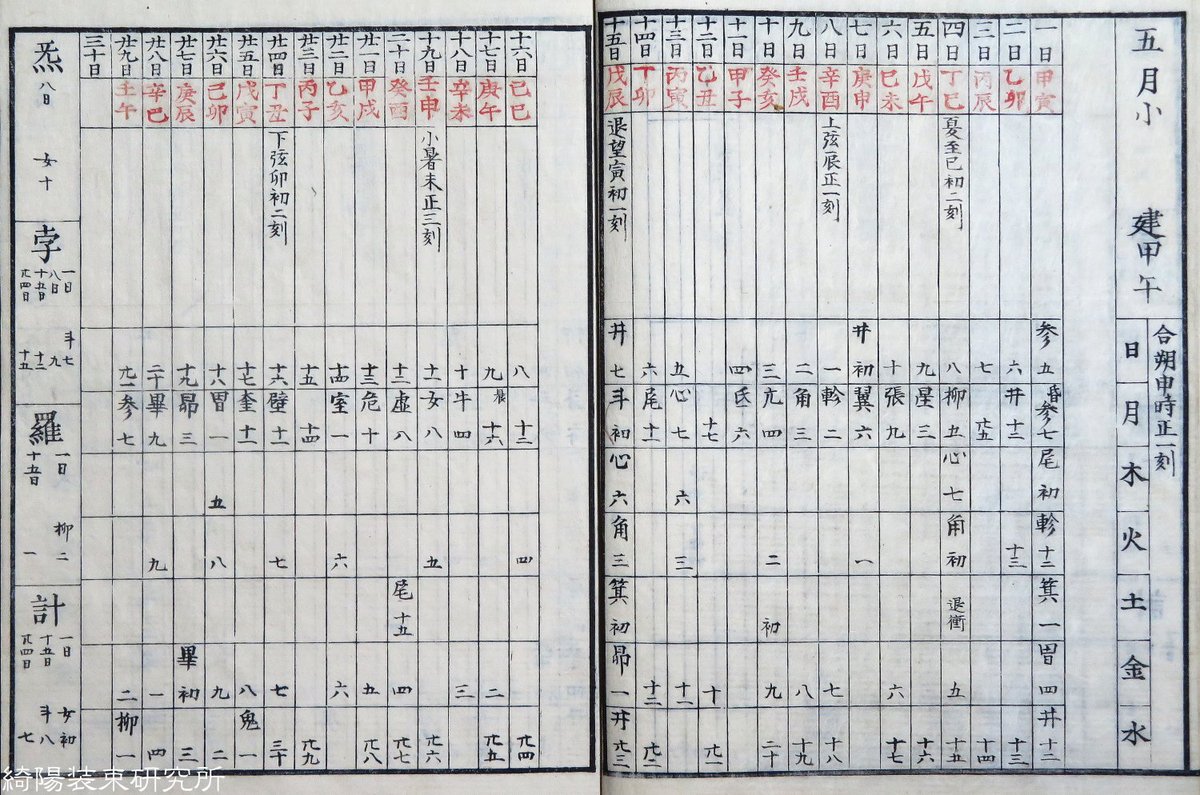 五月小 建甲午 日 月 木 火 土 金 水
合朔申時正一刻
一日 甲寅 参五 昏参七 尾初 軫十二 箕一 胃四 井十二
二日 乙卯 六 井十二 十三 十三
三日 丙辰 七 廿五 十四
四日 丁巳 夏至巳初二刻 八 柳五 心七 角初 退衝 五 十五
五日 戊午 九 星三 十六
六日 己未 十 張九 六 十七
七日 庚申 井初 翼六 一
八日 辛酉 上弦辰正一刻 一 軫二 七 十八
九日 壬戌 二 角三 八 十九
十日 癸亥 三 亢四 二 初 九 二十
十一日 甲子 四 氐六
十二日 乙丑 十七 十 廿一
十三日 丙寅 五 心七 六 三 十一
十四日 丁卯 六 尾十一 十二 廿二
十五日 戊辰 退望寅初一刻 井七 斗初 心六 角三 箕初 昴一 井廿三
十六日 己巳 八 十二 四 廿四
十七日 庚午 九 晨 十六 二 廿五
十八日 辛未 十 牛四 三
十九日 壬申 小暑未正三刻 十一 女八 五 廿六
二十日 癸酉 十二 虚八 尾十五 四 廿七
廿一日 甲戌 十三 危十 五 廿八
廿二日 乙亥 十四 室一 六 六
廿三日 丙子 十五 十四 廿九
廿四日 丁丑 下弦卯初二刻 十六 壁十一 七 七 三十
廿五日 戊寅 十七 奎十一 八 鬼一
廿六日 己卯 十八 胃一 五 八 九 二
廿七日 庚辰 十九 昴三 畢初 三
廿八日 辛巳 二十 畢九 九 一 四
廿九日 壬午 廿一 参七 二 柳一
三十日
炁 八日 女十
孛 一日 八日 十五日 廿四日 斗七 九 十二 十五
羅 一日 十五日 柳二 一
計 一日 十五日 廿四日 女初 斗八 七
綺陽装束研究所